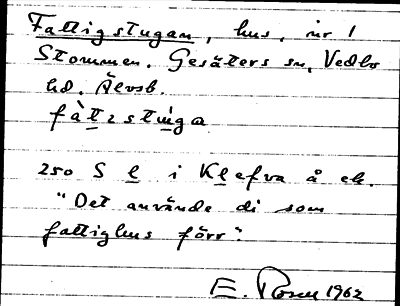 Fattigstugan, hus, nr 1
Stommen. Gesäters sn, Vedbo
hd. Älvsb.
fàtɪstúga
250 S l i Klefva å ek.
"Det använde di som
fattighus förr".
E. Rosen 1962